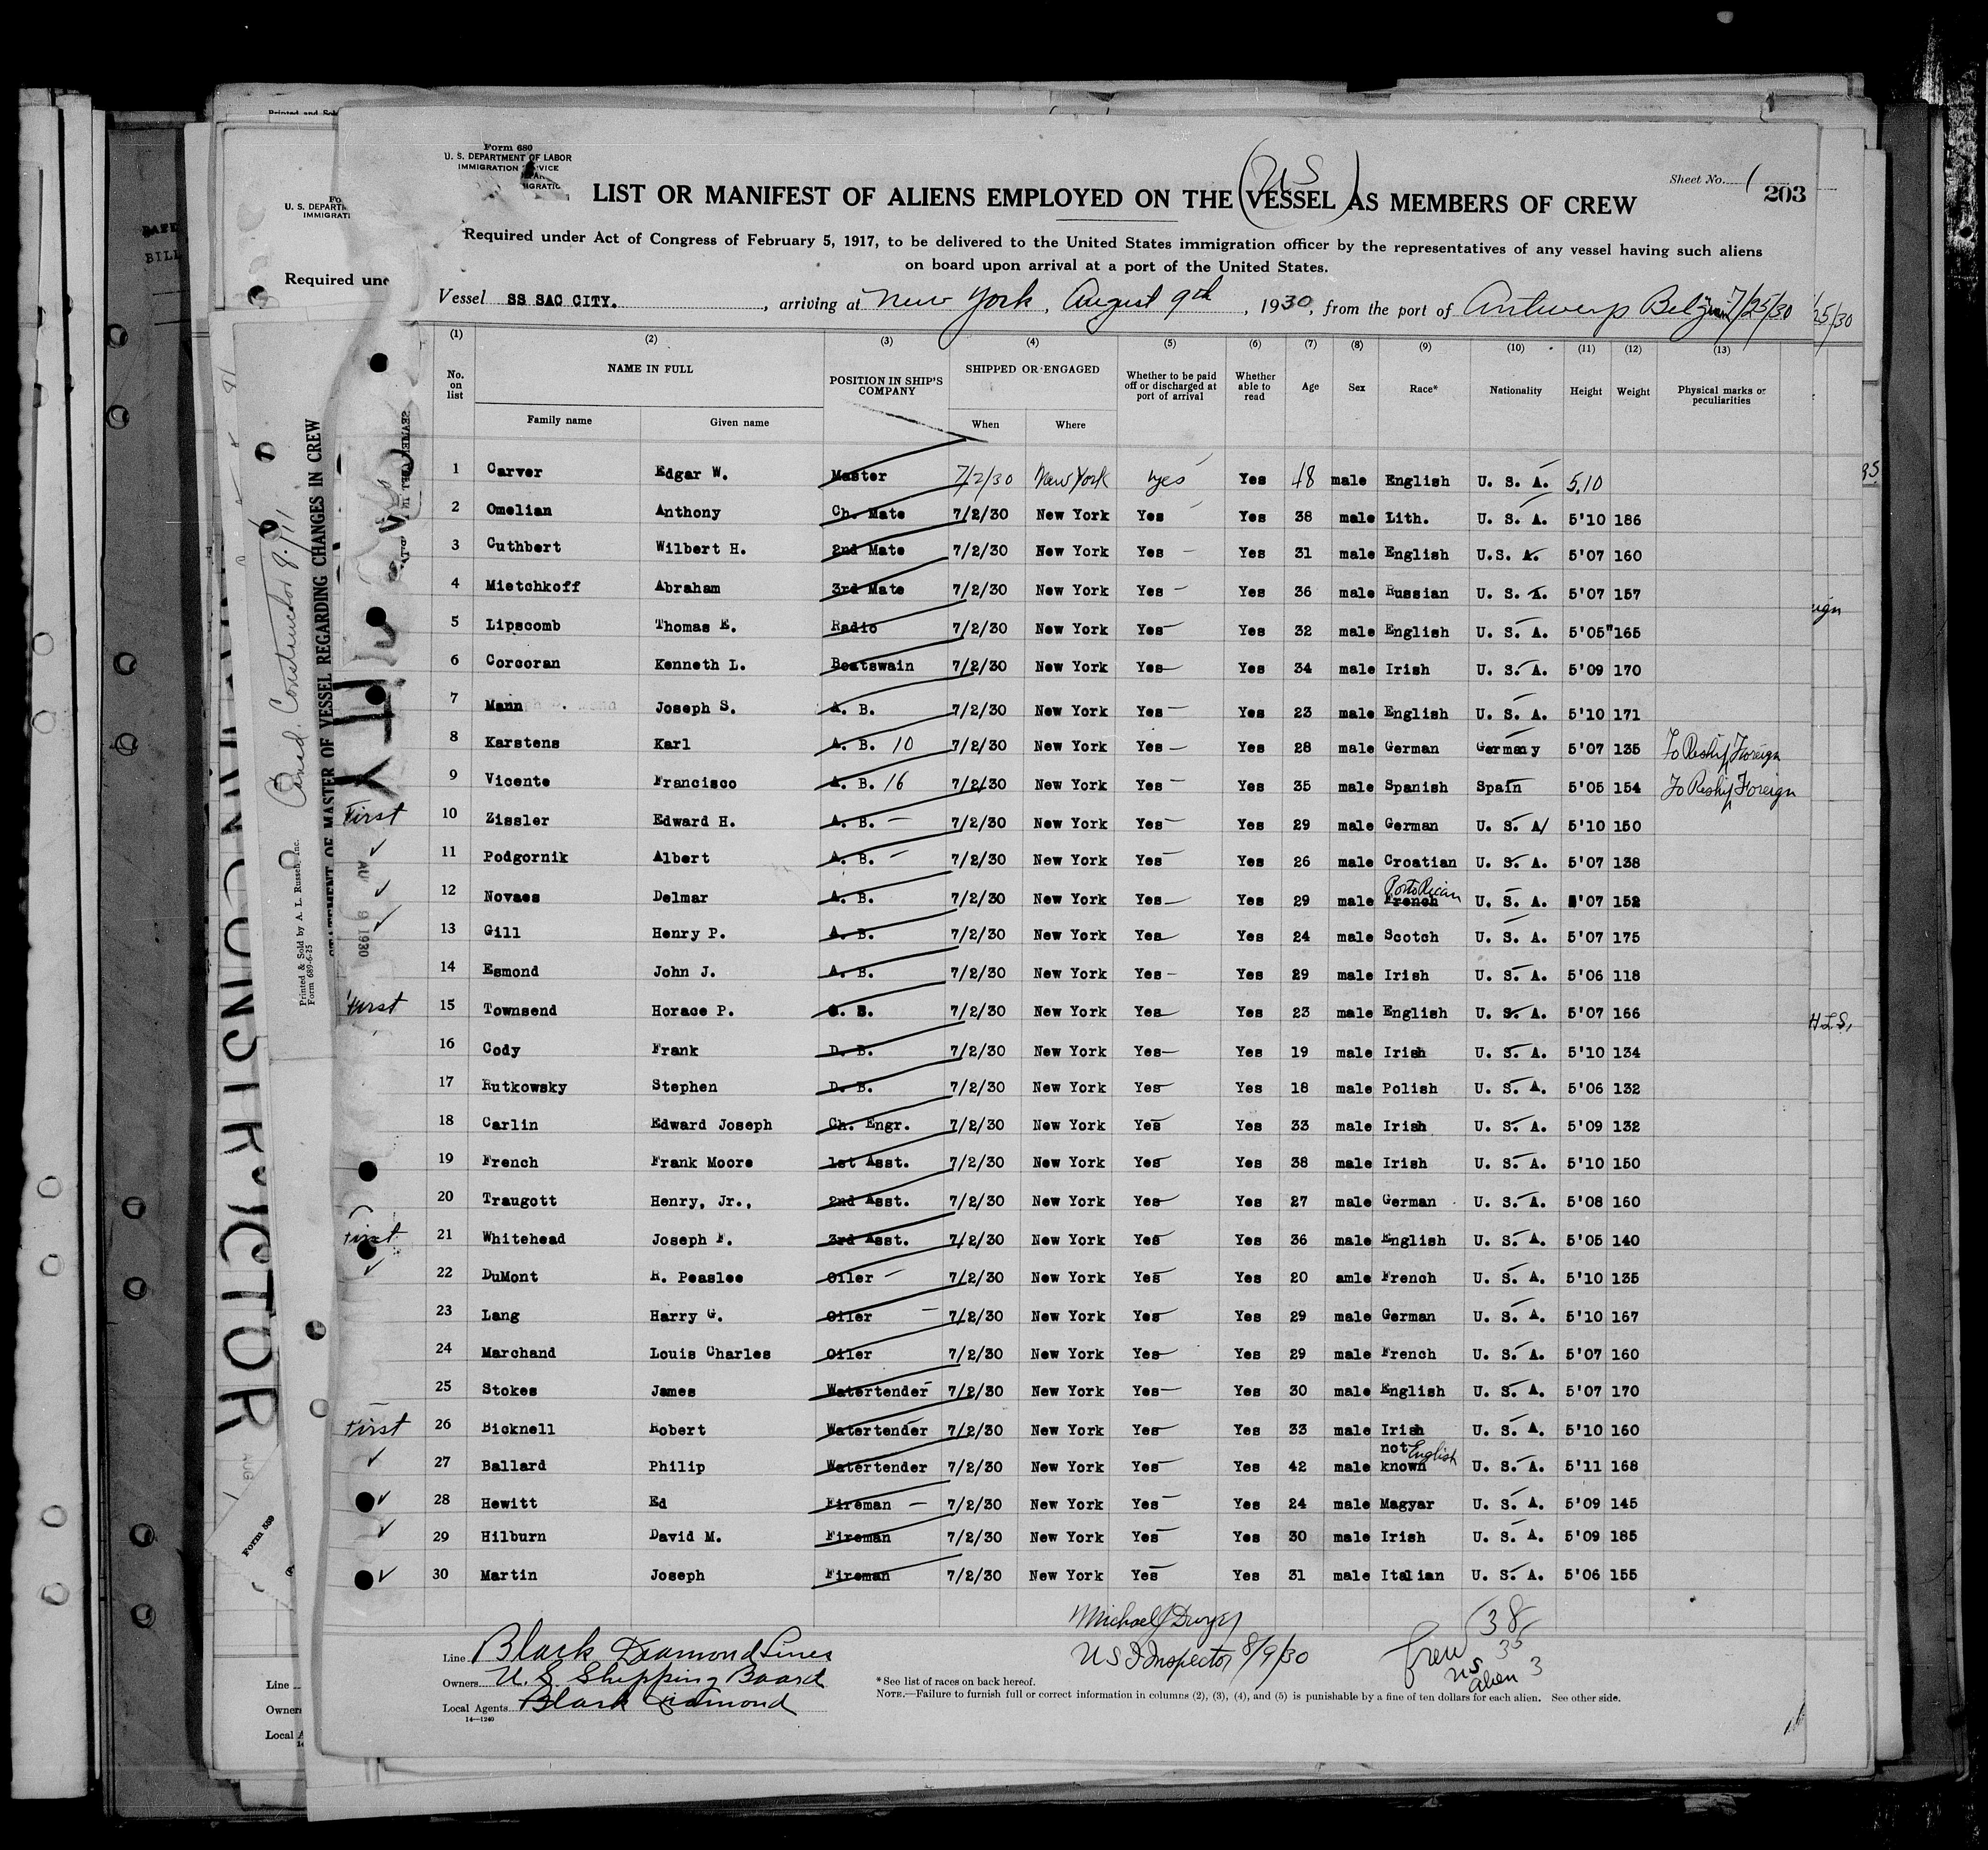 Form 680
U. S. DEPARTMENT OF LABOR
IMMIGRATION SERVICE
Sheet No. 1
203
(US)
LIST OR MANIFEST OF ALIENS EMPLOYED ON THE VESSEL AS MEMBERS OF CREW
Required under Act of Congress of February 5, 1917, to be delivered to the United States immigration officer by the representatives of any vessel having such aliens
on board upon arrival at a port of the United States.
Vessel SS SAC CITY., arriving at New York, August 9th, 1930, from the port of Antwerp Belgium 7/25/30
(1) (2) (3) (4) (5) (6) (7) (8) (9) (10) (11) (12) (13)
No. on list NAME IN FULL Family name Given name POSITION IN SHIP'S COMPANY SHIPPED OR ENGAGED When Where Whether to be paid off or discharged at port of arrival Whether able to read Age Sex Race* Nationality Height Weight Physical marks or peculiarities
1 Carver Edgar W. Master 7/2/30 New York Yes Yes 48 male English U. S. A. 5,10
2 Omelian Anthony Ch. Mate 7/2/30 New York Yes Yes 38 male Lith. U. S. A. 5'10 186
3 Cuthbert Wilbert H. 2nd Mate 7/2/30 New York Yes Yes 31 male English U.S. A. 5'07 160
4 Mietchkoff Abraham 3rd Mate 7/2/30 New York Yes Yes 36 male Russian U. S. A. 5'07 157
5 Lipscomb Thomas E. Radio 7/2/30 New York Yes Yes 32 male English U. S. A. 5'05" 165
6 Corcoran Kenneth L. Boatswain 7/2/30 New York Yes Yes 34 male Irish U. S. A. 5'09 170
7 Mann Joseph S. A. B. 7/2/30 New York Yes Yes 23 male English U. S. A. 5'10 171
8 Karstens Karl A. B. 10 7/2/30 New York Yes Yes 28 male German Germany 5'07 135 To Reship Foreign
9 Vicente Francisco A. B. 16 7/2/30 New York Yes Yes 35 male Spanish Spain 5'05 154 To Reship Foreign
First 10 Zissler Edward H. A. B. 7/2/30 New York Yes Yes 29 male German U. S. A/ 5'10 150
✓ 11 Podgornik Albert A. B. 7/2/30 New York Yes Yes 26 male Croatian U. S. A. 5'07 138
✓ 12 Novaes Delmar A. B. 7/2/30 New York Yes Yes 29 male French Porto Rican U. S. A. 5'07 152
✓ 13 Gill Henry P. A. B. 7/2/30 New York Yes Yes 24 male Scotch U. S. A. 5'07 175
14 Esmond John J. A. B. 7/2/30 New York Yes Yes 29 male Irish U. S. A. 5'06 118
First 15 Townsend Horace P. O. S. 7/2/30 New York Yes Yes 23 male English U. S. A. 5'07 166
16 Cody Frank D. B. 7/2/30 New York Yes Yes 19 male Irish U. S. A. 5'10 134
17 Rutkowsky Stephen D. B. 7/2/30 New York Yes Yes 18 male Polish U. S. A. 5'06 132
18 Carlin Edward Joseph Ch. Engr. 7/2/30 New York Yes Yes 33 male Irish U. S. A. 5'09 132
19 French Frank Moore 1st Asst. 7/2/30 New York Yes Yes 38 male Irish U. S. A. 5'10 150
20 Traugott Henry, Jr., 2nd Asst. 7/2/30 New York Yes Yes 27 male German U. S. A. 5'08 160
First 21 Whitehead Joseph F. 3rd Asst. 7/2/30 New York Yes Yes 36 male English U. S. A. 5'05 140
✓ 22 DuMont R. Peaslee Oiler 7/2/30 New York Yes Yes 20 amle French U. S. A. 5'10 135
23 Lang Harry G. Oiler 7/2/30 New York Yes Yes 29 male German U. S. A. 5'10 167
24 Marchand Louis Charles Oiler 7/2/30 New York Yes Yes 29 male French U. S. A. 5'07 160
25 Stokes James Watertender 7/2/30 New York Yes Yes 30 male English U. S. A. 5'07 170
First 26 Bicknell Robert Watertender 7/2/30 New York Yes Yes 33 male Irish U. S. A. 5'10 160
✓ 27 Ballard Philip Watertender 7/2/30 New York Yes Yes 42 male not known English U. S. A. 5'11 168
✓ 28 Hewitt Ed Fireman 7/2/30 New York Yes Yes 24 male Magyar U. S. A. 5'09 145
✓ 29 Hilburn David M. Fireman 7/2/30 New York Yes Yes 30 male Irish U. S. A. 5'09 185
✓ 30 Martin Joseph Fireman 7/2/30 New York Yes Yes 31 male Italian U. S. A. 5'06 155
Michael J Dwyer
US I Inspector 8/9/30
Crew 38
US 35
alien 3
Line Black Diamond Lines
Owners U.S. Shipping Board
Local Agents Black Diamond
14—1240
*See list of races on back hereof.
NOTE.—Failure to furnish full or correct information in columns (2), (3), (4), and (5) is punishable by a fine of ten dollars for each alien. See other side.
STATEMENT OF MASTER OF VESSEL REGARDING CHANGES IN CREW
Printed & Sold by A. L. Russell, Inc.
Form 689-6-25
9 1930
Required und
U. S. DEPARTM
IMMIGRATI
Line
Owners
Local A
Form 559
25/30
H.L.S.